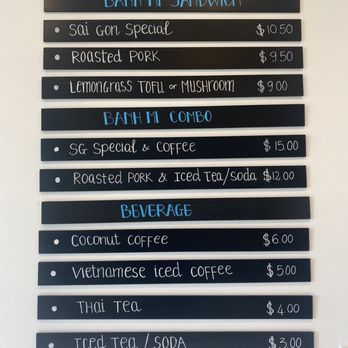 BANH MI SANDWICH
Sai Gon Special $10.50
Roasted Pork $9.50
Lemongrass Tofu or Mushroom $9.00
BANH MI COMBO
SG Special & Coffee $15.00
Roasted Pork & Iced Tea/Soda $12.00
BEVERAGE
Coconut Coffee $6.00
Vietnamese Iced Coffee $5.00
Thai Tea $4.00
Iced Tea / SODA $3.00